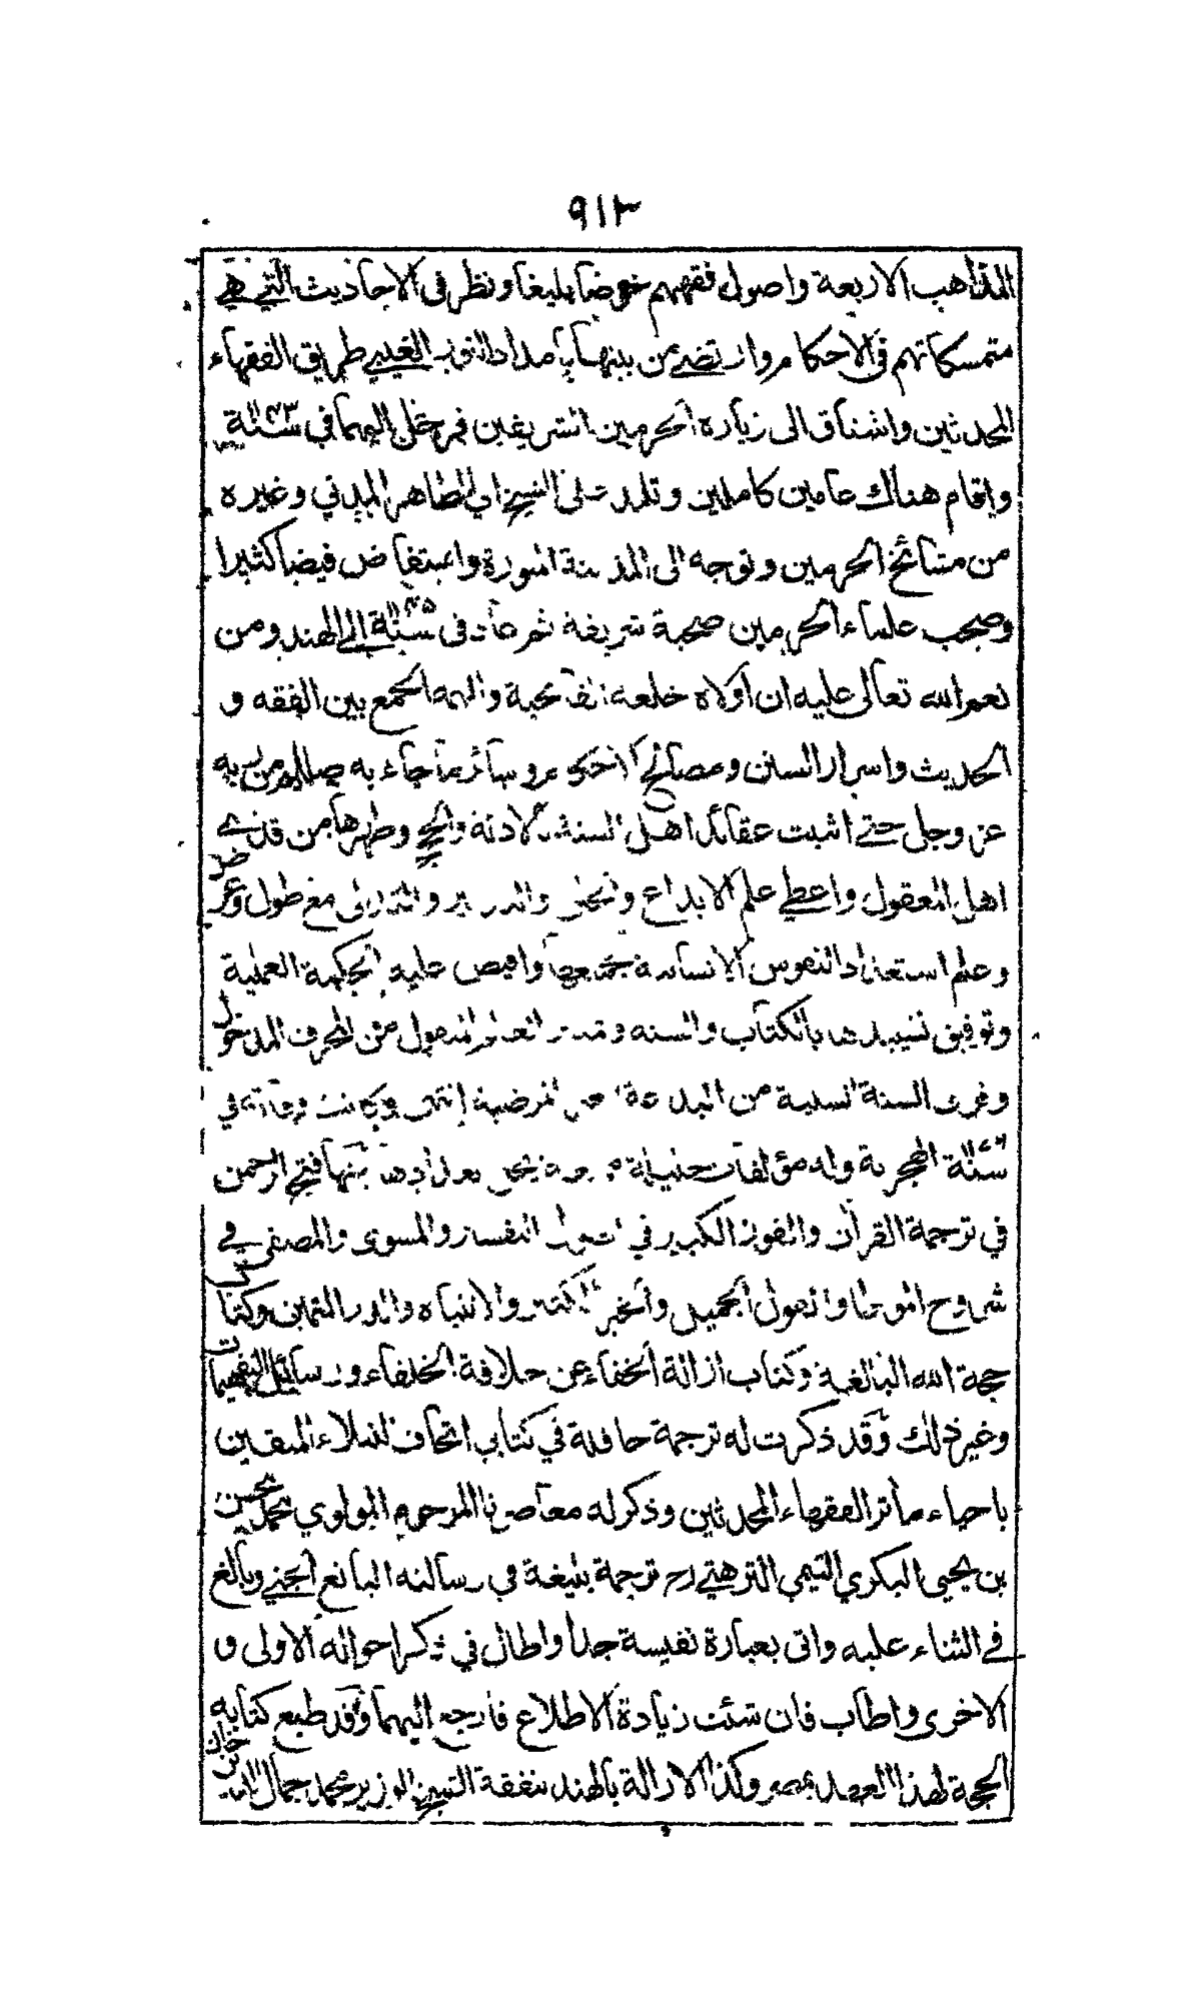 ٩١٣
المذاهب الاربعة واصول فقههم خوضا بليغا ونظر في الاحاديث التي هي
متمسكاتهم في الاحكام وارتضى من بينها بامداد النور الغيبي طريق الفقهاء
المحدثين واشتاق الى زيارة الحرمين الشريفين فرحل اليهما في سنة ١١٤٣
واقام هناك عامين كاملين وتلمذ على الشيخ ابي الطاهر المدني وغيره
من مشائخ الحرمين وتوجه الى المدينة المنورة واستفاض فيضا كثيرا
وصحب علماء الحرمين صحبة شريفة ثم عاد في سنة ١١٤٥ الى الهند ومن
نعم الله تعالى عليه ان اولاه خلعة الفاتحية والهمه الجمع بين الفقه و
الحديث واسرار السنن ومصالح الاحكام وسائر ما جاء به صللم من ربه
عز وجل حتى اثبت عقائد اهل السنة بالادلة والحجج وطهرها من قذى
اهل المعقول واعطي علم الابداع والخلق والتدبير والتدلي مع طول وعرض
وعلم استعداد النفوس الانسانية بجميعها وافيض عليه الحكمة العملية
وتوفيق تشييدها بالكتاب والسنة وتمييز العلم المنقول من المحرف المدخول
وفرق السنة السنية من البدعة غير المرضية انتهى وكانت وفاته في
سنة الهجرية وله مؤلفات جليلة يجل تعدادها منها فتح الرحمن
في ترجمة القرآن والفوز الكبير في اصول التفسير والمسوى والمصفى في
شروح الموطا والقول الجميل والخير الكثير والانتباه والدر الثمين وكتاب
حجة الله البالغة وكتاب ازالة الخفاء عن خلافة الخلفاء ورسائل التفهيمات
وغير ذلك وقد ذكرت له ترجمة حافلة في كتابي اتحاف النبلاء المتقين
باحياء مآثر الفقهاء المحدثين وذكر له معاصرنا المرحوم المولوي محمد محسن
بن يحيى البكري التيمي الترهتي رح ترجمة بليغة في رسالته اليانع الجني وبالغ
في الثناء عليه واتى بعبارة نفيسة جدا واطال في ذكر احواله الاولى و
الاخرى واطاب فان شئت زيادة الاطلاع فارجع اليهما وقد طبع كتابه
الحجة لهذا العهد بمصر وكذا الازالة بالهند بنفقة الشيخ الوزير محمد جمال الدين خان